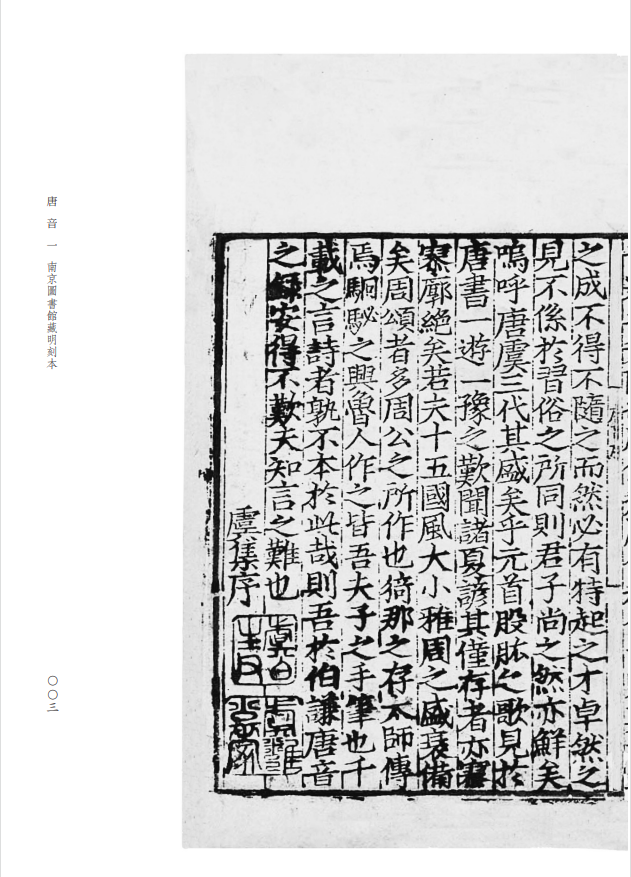 之成不得不隨之而然必有特起之才卓然之
見不係於習俗之所同則君子尚之然亦鮮矣
嗚呼唐虞三代其盛矣乎元首股肱之歌見於
唐書一遊一豫之歎聞諸夏諺其僅存者亦寥
寥廓絕矣若夫十五國風大小雅周之盛衰備
矣周頌者多周公之所作也猗那之存太師傳
焉駉駜之興魯人作之皆吾夫子之手筆也千
載之言詩者孰不本於此哉則吾於伯謙唐音
之錄安得不歎夫知言之難也
虞集序
唐音一 南京圖書館藏明刻本
〇〇三